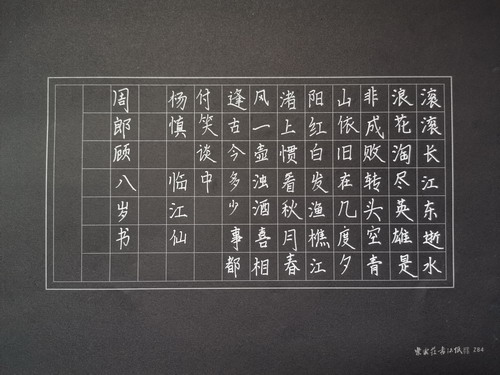 滚滚长江东逝水
浪花淘尽英雄是
非成败转头空青
山依旧在几度夕
阳红白发渔樵江
渚上惯看秋月春
风一壶浊酒喜相
逢古今多少事都
付笑谈中
杨慎 临江仙
周郎顾八岁书
284